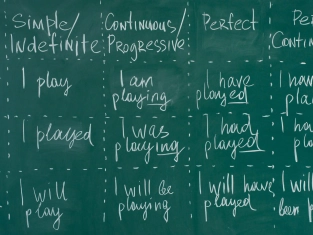 Simple/
Indefinite
Continuous/
Progressive
Perfect
I play
I am
playing
I have
played
I played
I was
playing
I had
played
I will
play
I will be
playing
I will have
played
I will
been